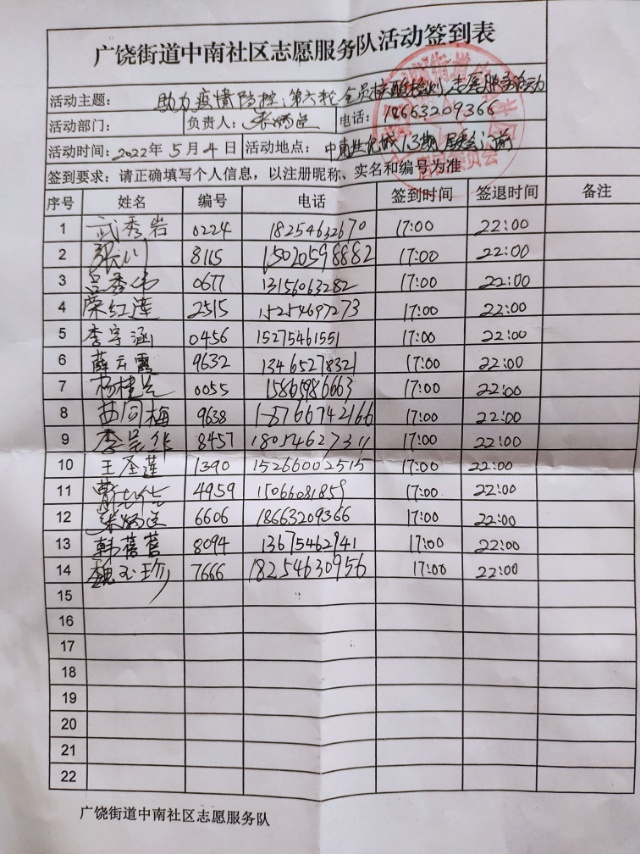 广饶街道中南社区志愿服务队活动签到表
活动主题： 助力疫情防控、第六轮全员核酸检测志愿服务活动
活动部门： 负责人： 电话：18663209366
活动时间：2022年5月4日 活动地点：中南世纪城13期居委门前
签到要求：请正确填写个人信息，以注册昵称、实名和编号为准
序号 姓名 编号 电话 签到时间 签退时间 备注
1 武秀岩 0224 18254632670 17:00 22:00
2 张川 8115 15020598882 17:00 22:00
3 吕秀伟 0677 13156063282 17:00 22:00
4 荣红莲 2515 15254697273 17:00 22:00
5 李宇涵 0456 15275461551 17:00 22:00
6 薛云霞 9632 13465278321 17:00 22:00
7 杨桂兰 0055 15865986663 17:00 22:00
8 苗同梅 9638 15766742166 17:00 22:00
9 8457 18054627311 17:00 22:00
10 王圣莲 1390 15266002515 17:00 22:00
11 4959 15066081859 17:00 22:00
12 6606 18663209366 17:00 22:00
13 韩蓓蓓 8094 13675462941 17:00 22:00
14 魏玉珍 7666 18254630956 17:00 22:00
15
16
17
18
19
20
21
22
广饶街道中南社区志愿服务队